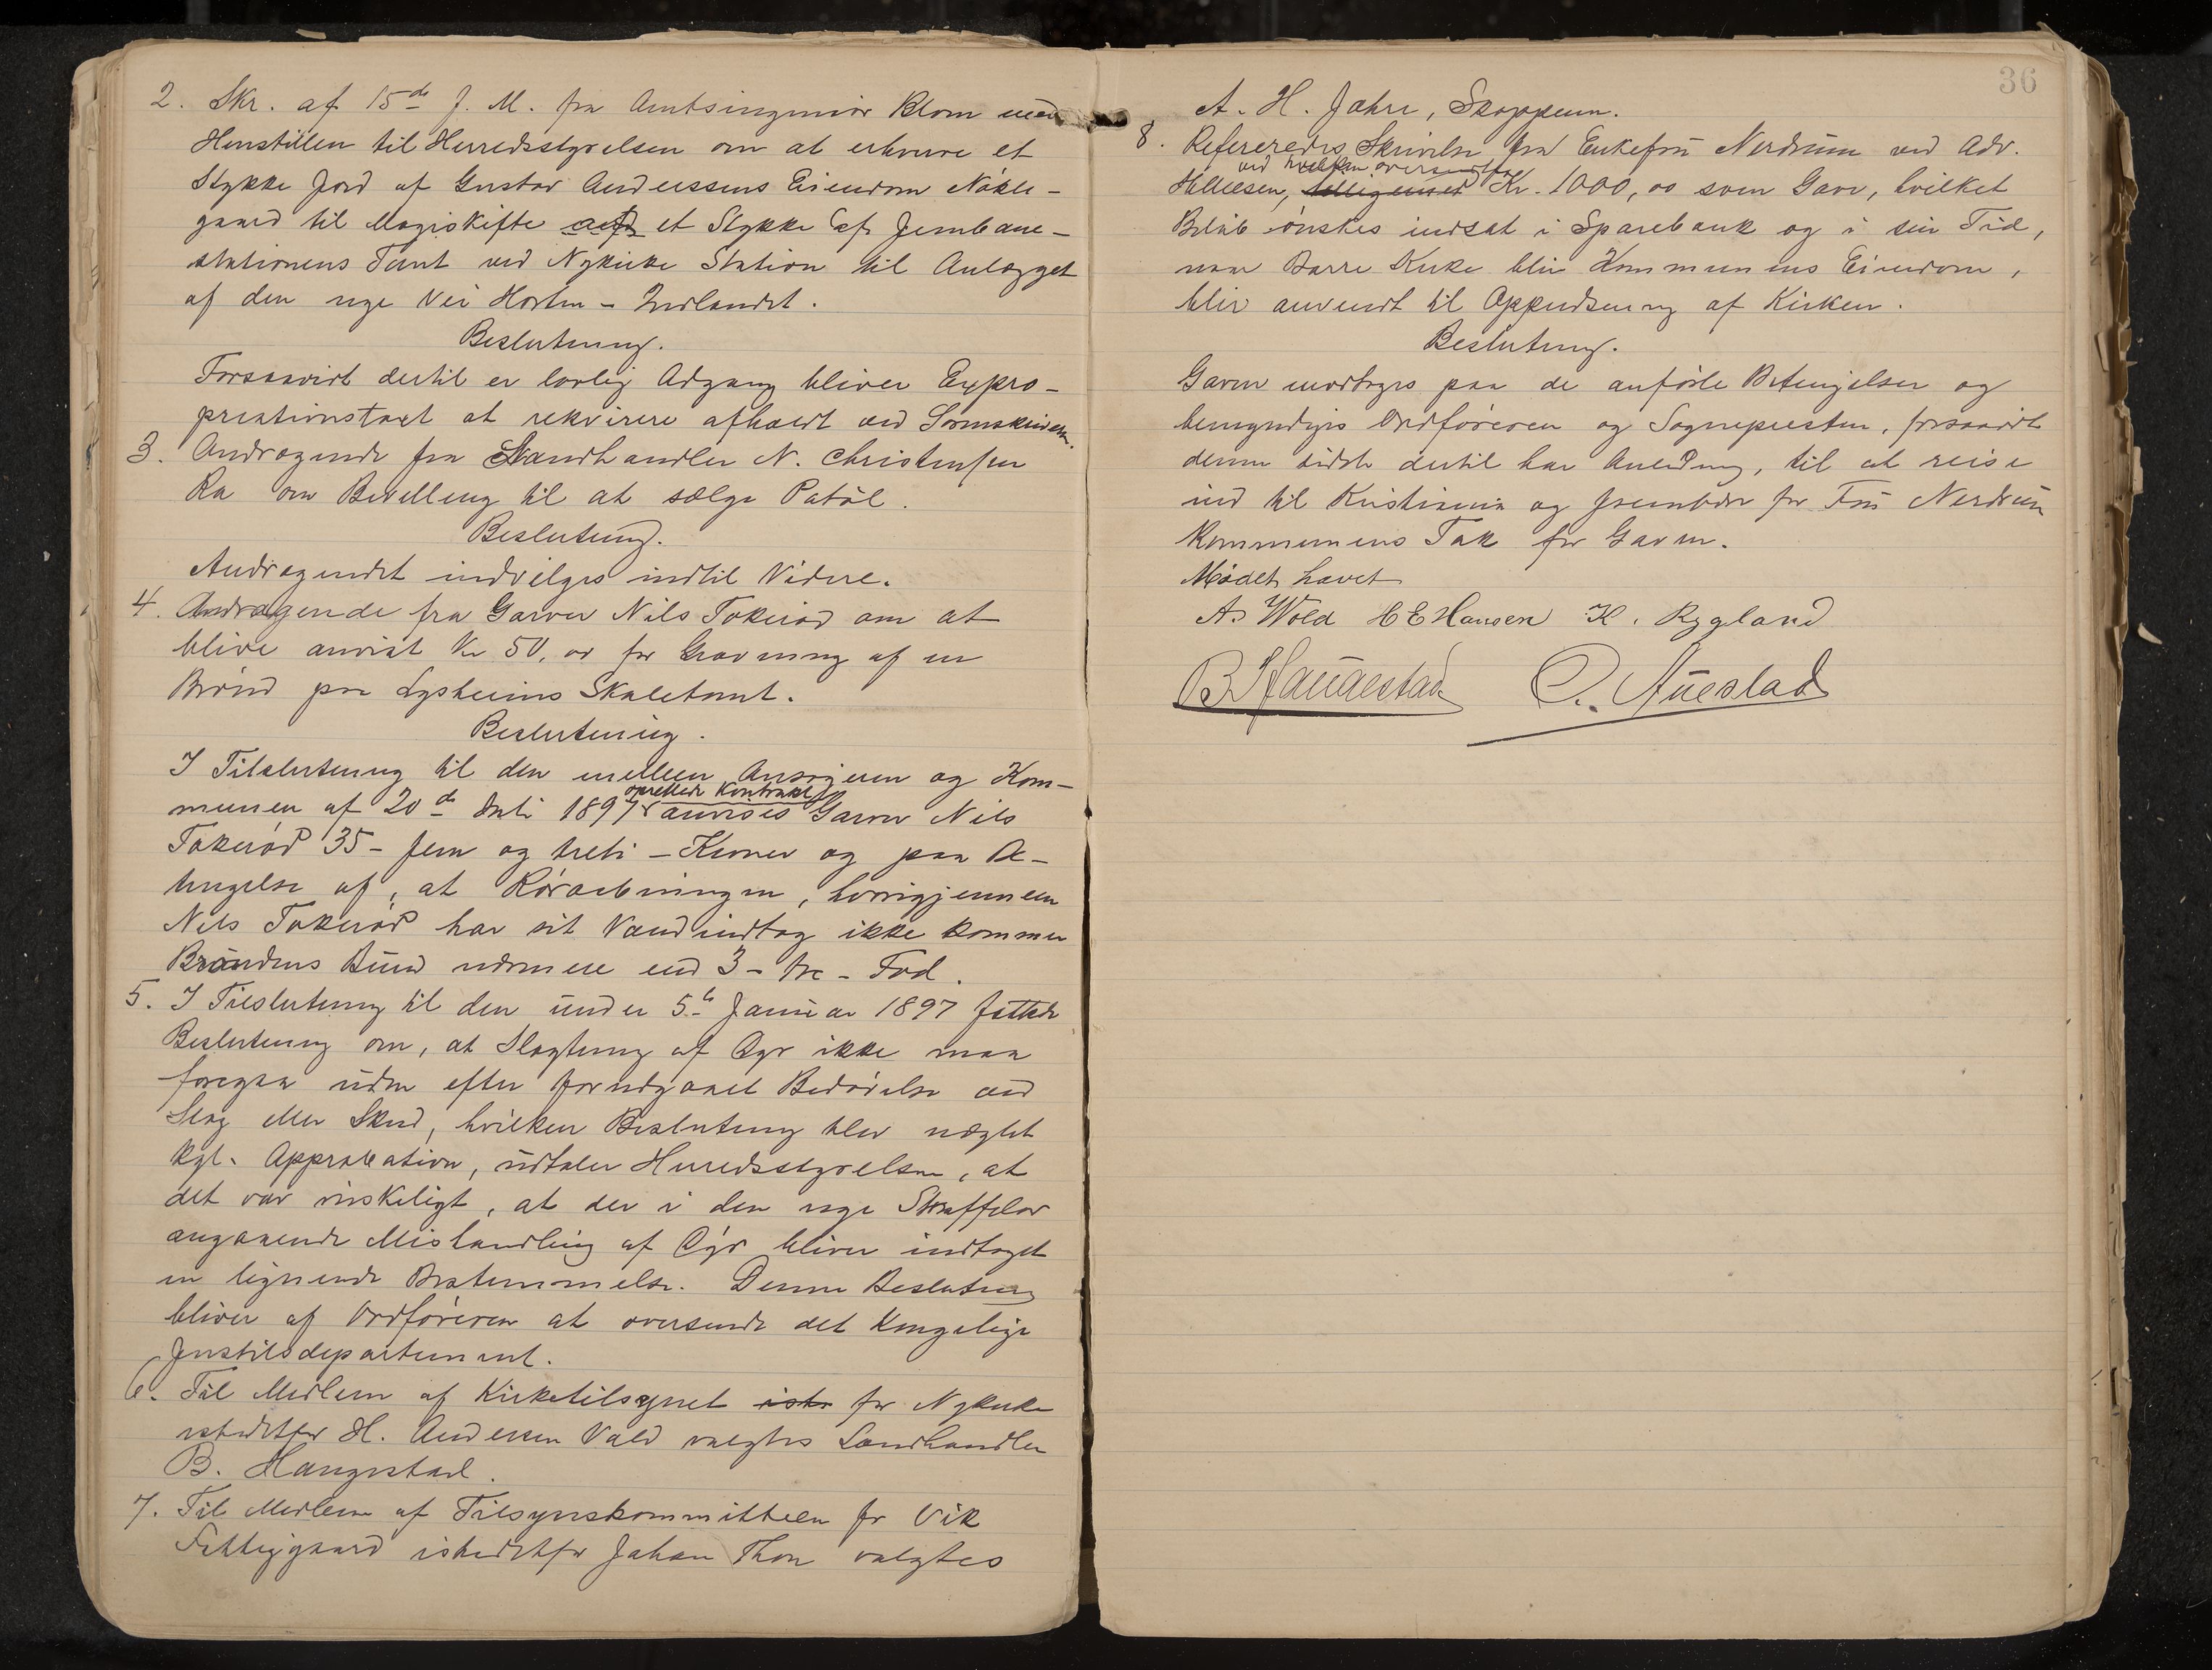 2. Skr. af 15de f. M. fra Amtsingeniør Blom med
Henstillen til Herredsstyrelsen om at erhverve et
Stykke Jord af Gustav Anderssens Eiendom Nökle-
gaard til Magiskifte af et Stykke af Jernbane-
stationens Tomt ved Nykirke Station til Anlægget
af den nye Vei Horten - Indlandet.
Beslutning.
Forsaavidt dertil er lovlig Adgang bliver Expro-
priationstaxt at rekvirere afholdt ved Sorenskriveren.
3. Andragende fra Landhandler N. Christensen
Ra om Bevilling til at sælge Patöl.
Beslutning.
Andragendet indvilges indtil Videre.
4. Andragende fra Garver Nils Tokeröd om at
blive anvist Kr 50,00 for Gravning af en
Brönd paa Lysheims Skoletomt.
Beslutning.
I Tilslutning til den mellem Ansøgeren og Kom-
oprettede Kontrakt
munen af 20de Juli 1897 anvises Garver Nils
Tokeröd 35 - fem og treti - Kroner og paa Be-
tingelse af, at Rörledningen, hvorigjennem
Nils Tokeröd har sit Vandindtag ikke kommer
Bröndens Bund nærmere end 3 - tre - Fod.
5. I Tilslutning til den under 5te Januar 1897 fattede
Beslutning om, at Slagtning af Dyr ikke maa
foregaa uden efter forudgaaet Bedövelse ved
Slag eller Skud, hvilken Beslutning blev nægtet
kgl. Approbation, udtaler Herredsstyrelsen, at
det var ønskeligt, at der i den nye Straffelov
angaaende Mishandling af Dyr bliver indtaget
en lignende Bestemmelse. Denne Beslutning
bliver af Ordföreren at oversende det Kongelige
Justitsdepartement.
6. Til Medlem af Kirketilsynet iste for Nykirke
istedetfor H. Andersen Vold valgtes Landhandler
B. Haugestad.
7. Til Medlem af Tilsynskommitteen for Vik
Fattiggaard istedetfor Johan Thon valgtes
36
A. H. Jahre, Skoppum.
8. Refereredes Skrivelse fra Enkefru Nerdrum ved Adv.
ved hvilken oversendtes
Hellesen, Kr. 1000,00 som Gave, hvilket
Belöb önskes indsat i Sparebank og i sin Tid,
naar Borre Kirke blir Kommunens Eiendom,
blir anvendt til Oppudsning af Kirken.
Beslutning.
Gaven modtages paa de anförte Betingelser og
bemyndiges Ordföreren og Sognepresten, forsaavidt
denne sidste dertil har Anledning, til at reise
ind til Kristiania og frembære for Fru Nerdrum
Kommunens Tak for Gaven.
Mödet hævet
A. Wold H E Hansen K. Rygland
B Haugestad O. Auestad